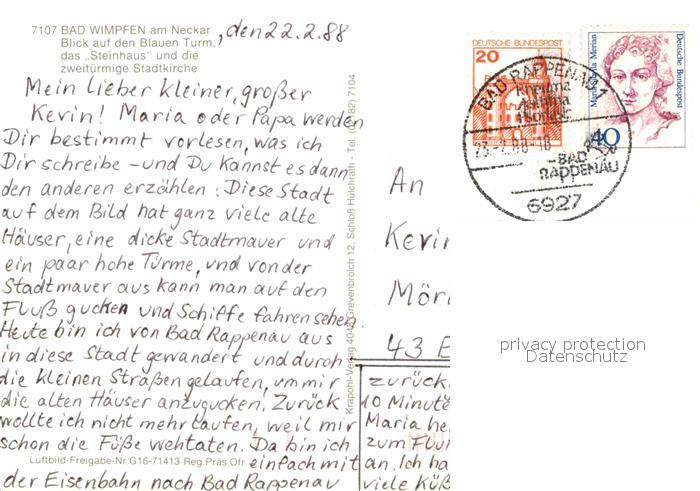 7107 BAD WIMPFEN am Neckar
Blick auf den Blauen Turm,
das „Steinhaus" und die
zweitürmige Stadtkirche
, den 22.2.88
Mein lieber kleiner, großer
Kevin! Maria oder Papa werden
Dir bestimmt vorlesen, was ich
Dir schreibe – und Du kannst es dann
den anderen erzählen: Diese Stadt
auf dem Bild hat ganz viele alte
Häuser, eine dicke Stadtmauer und
ein paar hohe Türme, und von der
Stadtmauer aus kann man auf den
Fluß gucken und Schiffe fahren sehen.
Heute bin ich von Bad Rappenau aus
in diese Stadt gewandert und durch
die kleinen Straßen gelaufen, um mir
die alten Häuser anzugucken. Zurück
wollte ich nicht mehr laufen, weil mir
schon die Füße wehtaten. Da bin ich
Luftbild-Freigabe-Nr. G16-71413 Reg.Präs.
einfach mit
der Eisenbahn nach Bad Rappenau
zurück
10 Minute
Maria he
zum Flu
an. Ich ha
viele Küß
Krapohl-Verlag Grevenbroich 12, Schloß Hülchrath - Tel. 7104
An
Kevin
Mör
43 E
DEUTSCHE BUNDESPOST
20
Deutsche Bundespost
Maria Sibylla Merian
40
BAD RAPPENAU 1
Rheuma
Asthma
BAD
RAPPENAU
6927
privacy protection
Datenschutz